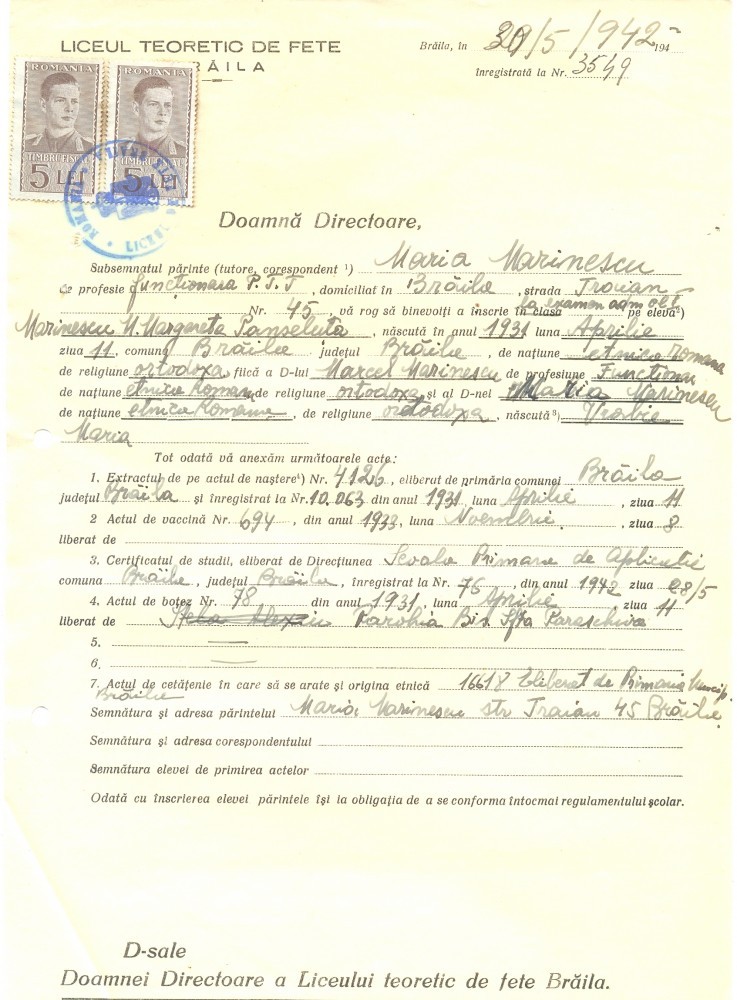 LICEUL TEORETIC DE FETE
BRĂILA
Brăila, în 30/5/942 194
înregistrată la Nr. 3549
ROMANIA ROMANIA
TIMBRU FISCAL TIMBRU FISCAL
5 LEI 5 LEI
Doamnă Directoare,
Subsemnatul părinte (tutore, corespondent ¹) Maria Marinescu
de profesie funcționara P.T.T, domiciliat în Brăila, strada Traian
Nr. 45 vă rog să binevoiți a înscrie în clasa la examen adm. pe eleva²)
Marinescu M. Margareta Panseluta, născută în anul 1931 luna Aprilie
ziua 11, comuna Brăila județul Brăila, de națiune etnica romana
de religiune ortodoxa, fiică a D-lui Marcel Marinescu de profesiune Functionar
de națiune etnica Romana de religiune ortodoxa și al D-nei Maria Marinescu
de națiune etnica Romana, de religiune ortodoxa, născută ³) Vrabie
Maria
Tot odată vă anexăm următoarele acte:
1. Extractul de pe actul de naștere⁴) Nr. 4126, eliberat de primăria comunei Brăila
județul Brăila și înregistrat la Nr. 10.063 din anul 1931 luna Aprilie, ziua 11
2 Actul de vaccină Nr. 694, din anul 1933, luna Noembrie, ziua 8
liberat de
3. Certificatul de studii, eliberat de Direcțiunea Scoala Primara de Aplicatie
comuna Brăila, județul Brăila, înregistrat la Nr. 76, din anul 1942 ziua 28/5
4. Actul de botez Nr. 78 din anul 1931, luna Aprilie ziua 11
liberat de Parohia Bis. Sfta Paraschiva
5.
6.
7. Actul de cetățenie în care să se arate și origina etnică 16618 Eliberat de Primaria Municip.
Brăila
Semnătura și adresa părintelui Maria Marinescu str Traian 45 Brăila
Semnătura și adresa corespondentului
Semnătura elevei de primirea actelor
Odată cu înscrierea elevei părintele își ia obligația de a se conforma întocmai regulamentului școlar.
D-sale
Doamnei Directoare a Liceului teoretic de fete Brăila.